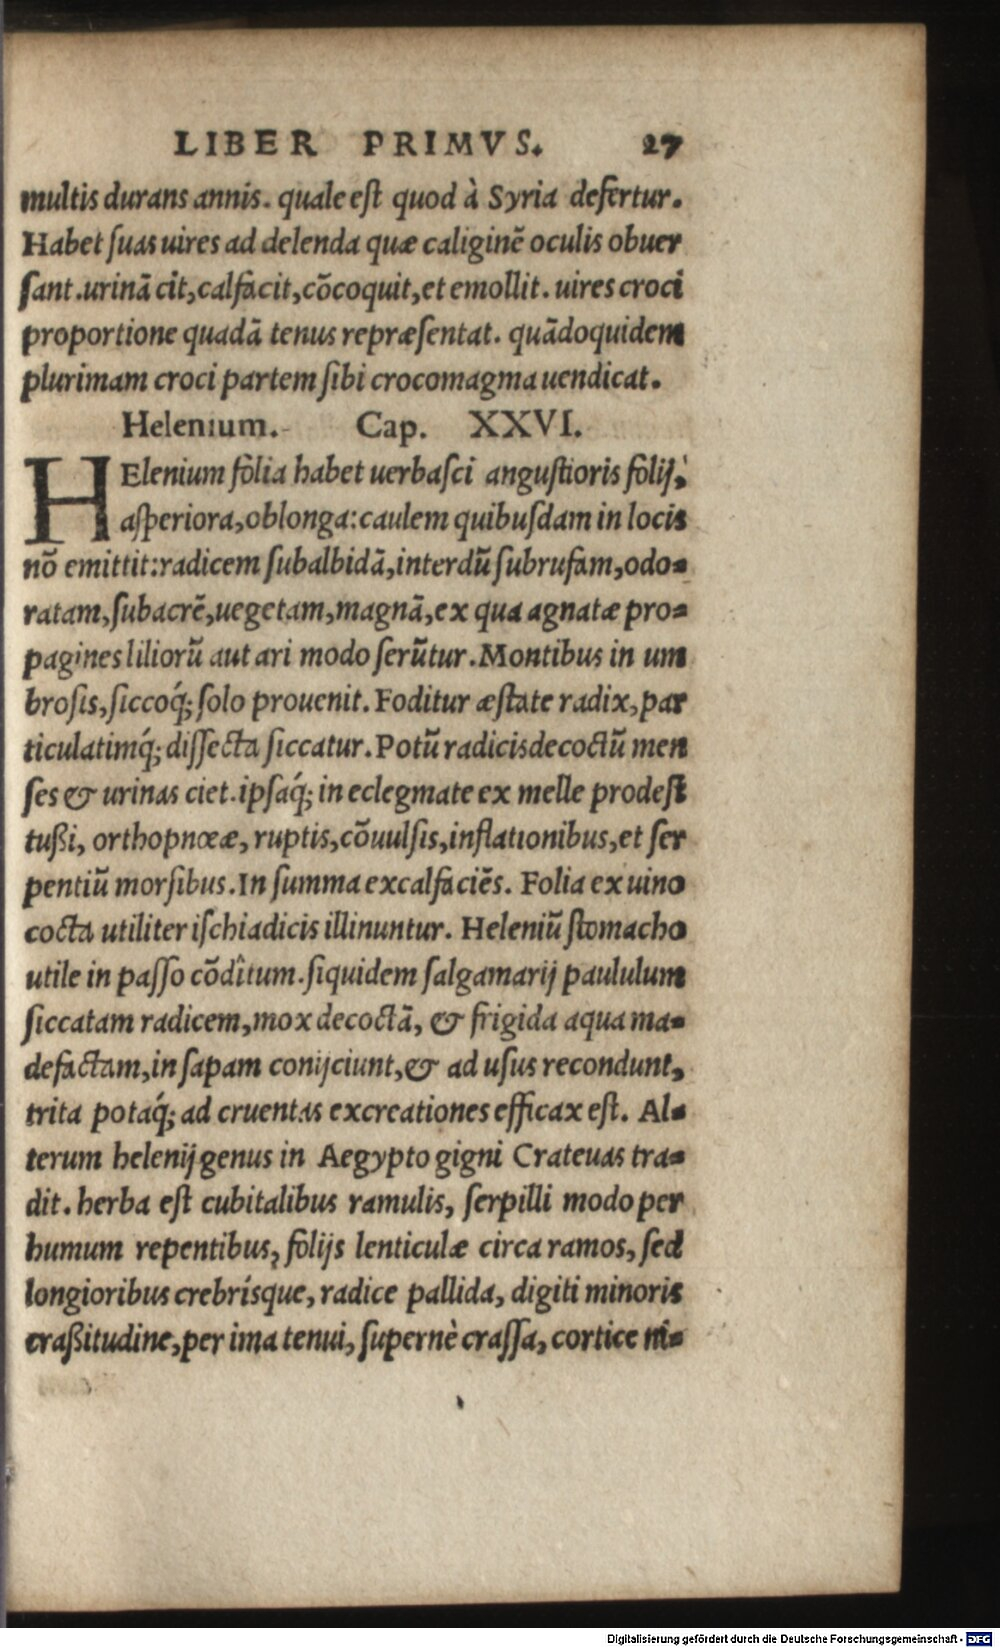 LIBER PRIMVS. 27
multis durans annis. quale est quod à Syria defertur.
Habet suas uires ad delenda quæ caliginẽ oculis obuer
sant. urinã cit, calfacit, cõcoquit, et emollit. uires croci
proportione quadã tenus repræsentat. quãdoquidem
plurimam croci partem sibi crocomagma uendicat.
Helenium. Cap. XXVI.
HElenium folia habet uerbasci angustioris folijs
asperiora, oblonga: caulem quibusdam in locis
nõ emittit: radicem subalbidã, interdũ subrufam, odo-
ratam, subacrẽ, uegetam, magnã, ex qua agnatæ pro-
pagines liliorũ aut ari modo serũtur. Montibus in um
brosis, siccoq́; solo prouenit. Foditur æstate radix, par
ticulatimq́; dissecta siccatur. Potũ radicis decoctũ men
ses & urinas ciet. ipsaq́; in eclegmate ex melle prodest
tußi, orthopnœæ, ruptis, cõuulsis, inflationibus, et ser
pentiũ morsibus. In summa excalfaciẽs. Folia ex uino
cocta utiliter ischiadicis illinuntur. Heleniũ stomacho
utile in passo cõdîtum. siquidem salgamarij paululum
siccatam radicem, mox decoctã, & frigida aqua ma-
defactam, in sapam conijciunt, & ad usus recondunt,
trita potaq́; ad cruentas excreationes efficax est. Al-
terum helenij genus in Aegypto gigni Crateuas tra-
dit. herba est cubitalibus ramulis, serpilli modo per
humum repentibus, folijs lenticulæ circa ramos, sed
longioribus crebrísque, radice pallida, digiti minoris
craßitudine, per ima tenui, supernè crassa, cortice ni-
Digitalisierung gefördert durch die Deutsche Forschungsgemeinschaft - DFG